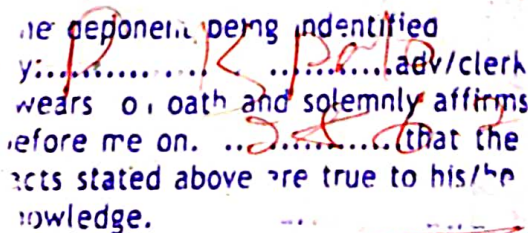 he deponent being indentified
y:.............. P K Pala ............adv/clerk
wears on oath and solemnly affirms
efore me on. .................that the
acts stated above are true to his/he
nowledge.